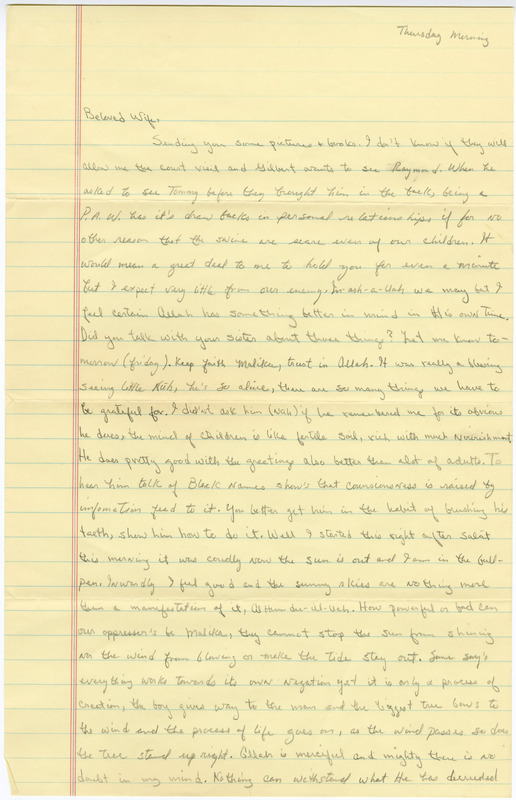 Thursday Morning
Beloved Wife,
Sending you some pictures & books. I don't know if they will
allow me the court visit and Gilbert wants to see Raymond. When he
asked to see Tommy before they brought him in the back, being a
P.O.W. has it's draw backs in personal relationships if for no
other reason that the swine are scare even of our children. It
would mean a great deal to me to hold you for even a minute
but I expect very little from our enemy. In-sh-a-llah we may but I
feel certain Allah has something better in mind in His own Time.
Did you talk with your sister about those things? Let me know to-
morrow (friday). Keep faith Malika, trust in Allah. It was really a blessing
seeing little Nuh, he's so alive, there are so many things we have to
be grateful for. I didn't ask him (Nuh) if he remembered me for its obvious
he does, the mind of children is like fertile soil, rich with much nourishment.
He does pretty good with the greetings also better than alot of adults. To
hear him talk of Black Names show's that counsiousness is raised by
infomation feed to it. You better get him in the habit of brushing his
teeth, show him how to do it. Well I started this right after salat
this morning it was cloudly now the sun is out and I am in the bull-
pen. Inwardly I feel good and the sunny skies are nothing more
than a manifestation of it, Al-Hum-du-ul-llah. How powerful or bad can
our oppressor's be Malika, they cannot stop the sun from shining
nor the wind from blowing or make the tide stay out. Some say's
everything works towards its own negation yet it is only a process of
creation, the boy gives way to the man and the biggest tree bows to
the wind and the process of life goes on, as the wind passes so does
the tree stand up right. Allah is merciful and mighty there is no
doubt in my mind. Nothing can withstand what He has decreeded